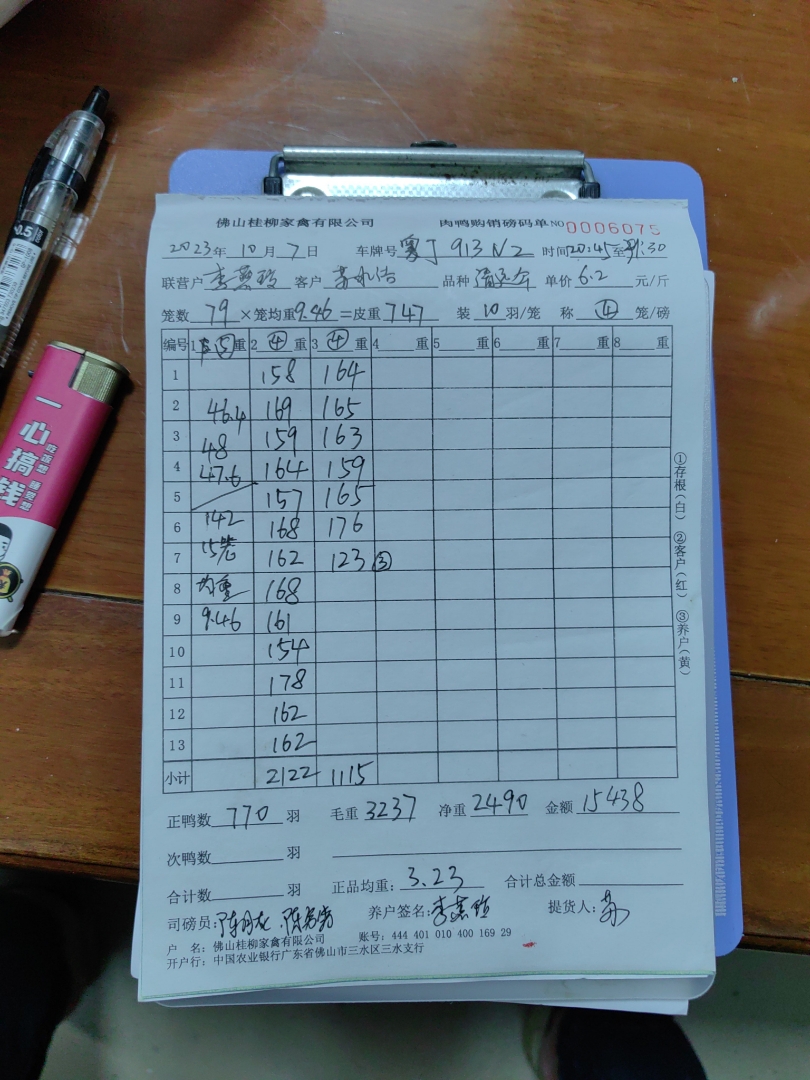 佛山桂柳家禽有限公司 肉鸭购销磅码单 NO 0006075
2023年 10月 7日 车牌号 粤J 913N2 时间 20:45 至 21:30
联营户 李燕玲 客户 苏永洁 品种 单价 6.2 元/斤
笼数 79 ×笼均重 9.46 =皮重 747 装 10 羽/笼 称 ④ 笼/磅
编号 1 ⑤ 重 2 ④ 重 3 ④ 重 4 重 5 重 6 重 7 重 8 重
1 158 164
2 46.4 169 165
3 48 159 163
4 47.6 164 159
5 157 165
6 142 168 176
7 15笼 162 123 ③
8 均重 168
9 9.46 161
10 154
11 178
12 162
13 162
小计 2122 1115
正鸭数 770 羽 毛重 3237 净重 2490 金额 15438
次鸭数 羽
合计数 羽 正品均重: 3.23 合计总金额
司磅员: 养户签名: 李燕玲 提货人: 苏
户 名: 佛山桂柳家禽有限公司 账号: 444 401 010 400 169 29
开户行: 中国农业银行广东省佛山市三水区三水支行
①存根(白) ②客户(红) ③养户(黄)
0.5
一心搞钱